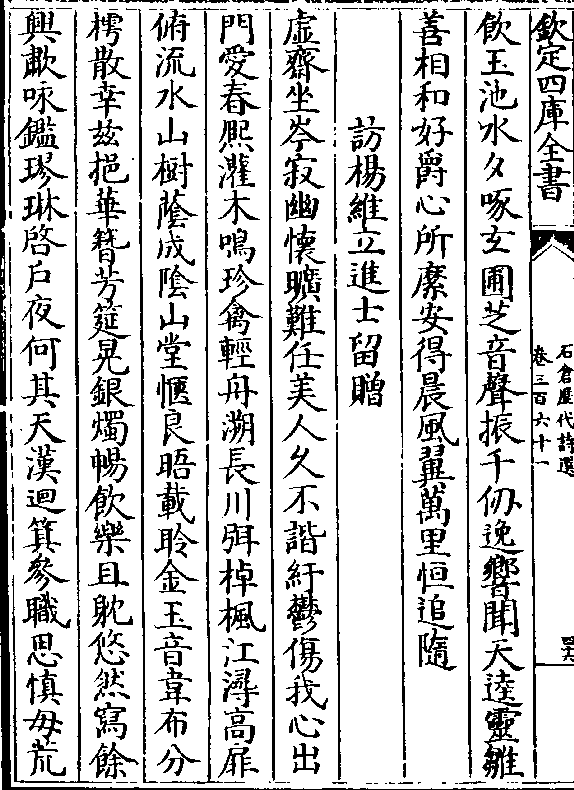 欽定四庫全書
石倉歷代詩選
卷三百六十一
飲玉池水夕啄玄圃芝音聲振千仞逸響聞天逵靈雛
善相和好爵心所縻安得晨風翼萬里恒追隨
訪楊維立進士留贈
虛齋坐岑寂幽懷曠難任美人久不諧紆鬱傷我心出
門愛春熙灌木鳴珍禽輕舟溯長川弭棹楓江潯高扉
俯流水山樹蔭成陰山堂愜良晤載聆金玉音韋布分
樗散幸玆挹華簪芳筵晃銀燭暢飲樂且躭悠然寫餘
興歗咏鑑璆琳啓戶夜何其天漢迴箕參職思慎毋荒